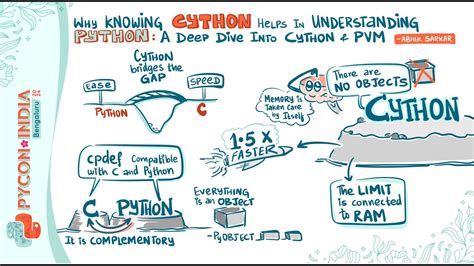 WHY KNOWING CYTHON HELPS IN UNDERSTANDING
PYTHON: A DEEP DIVE INTO CYTHON & PVM
-ABHIK SARKAR
PYCON INDIA
Bengaluru
CYTHON
bridges the
GAP
EASE
SPEED
PYTHON
C
cpdef Compatible
with C and Python
C PYTHON
It is COMPLEMENTORY
1.5 X
FASTER
EVERYTHING
is an OBJECT
-PyOBJECT
MEMORY is
Taken care
by Itself
There are
NO OBJECTS
CYTHON
The LIMIT
is connected
to RAM